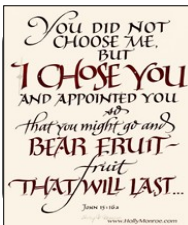 YOU DID NOT
CHOOSE ME,
BUT
I CHOSE YOU
AND APPOINTED YOU
so
that you might go and
BEAR FRUIT-
fruit
THAT WILL LAST...
JOHN 15:16a
www.HollyMonroe.com